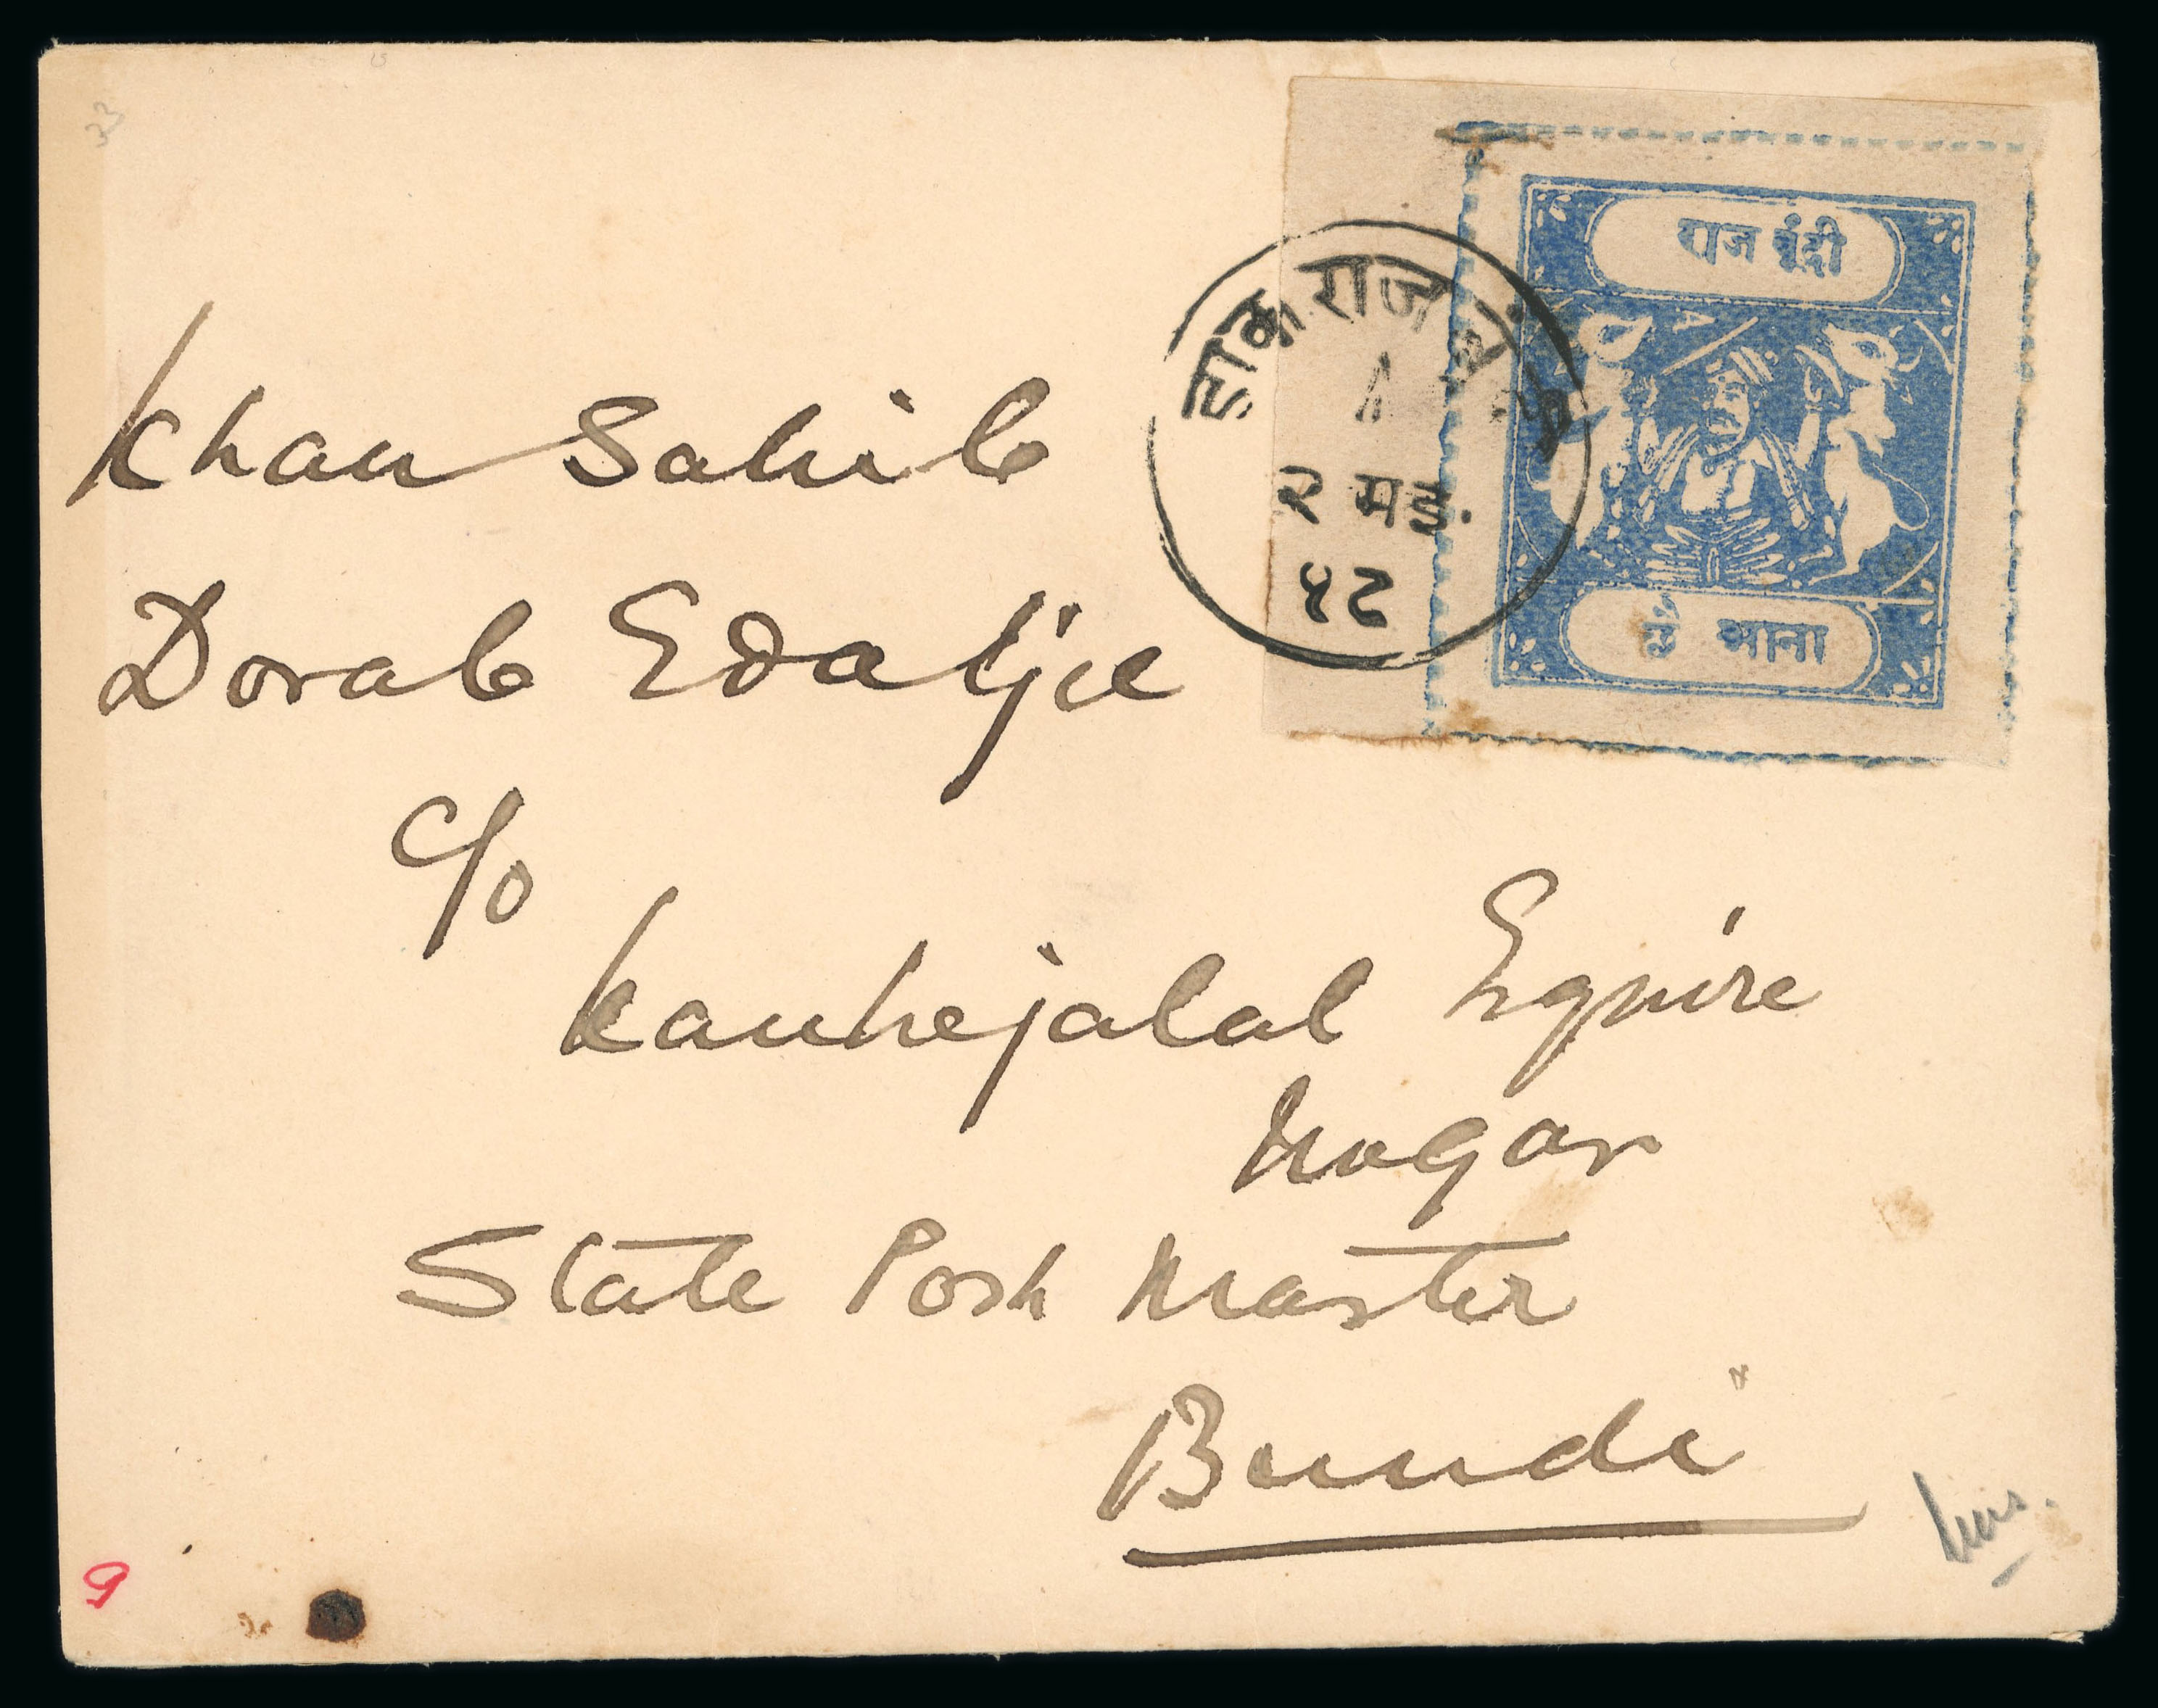 राज बूंदी
डाक राज बूंदी
२ मइ.
४८
आना
Khan Sahib
Dorab Edaljee
c/o
Kanhejalal Esquire
Nagar
State Post Master
Bundi
9